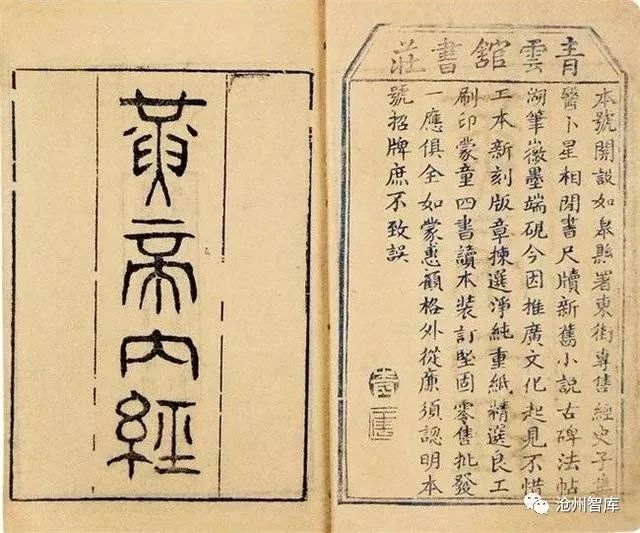 青雲館書莊
本號開設如皋縣署東街專售經史子集
醫卜星相閒書尺牘新舊小説古碑法帖
湖筆徽墨端硯今因推廣文化起見不惜
工本新刻版章揀選淨純重紙精選良工
刷印蒙童四書讀本裝訂堅固零售批發
一應俱全如蒙惠顧格外從廉須認明本
號招牌庶不致誤
黃帝內經
沧州智库